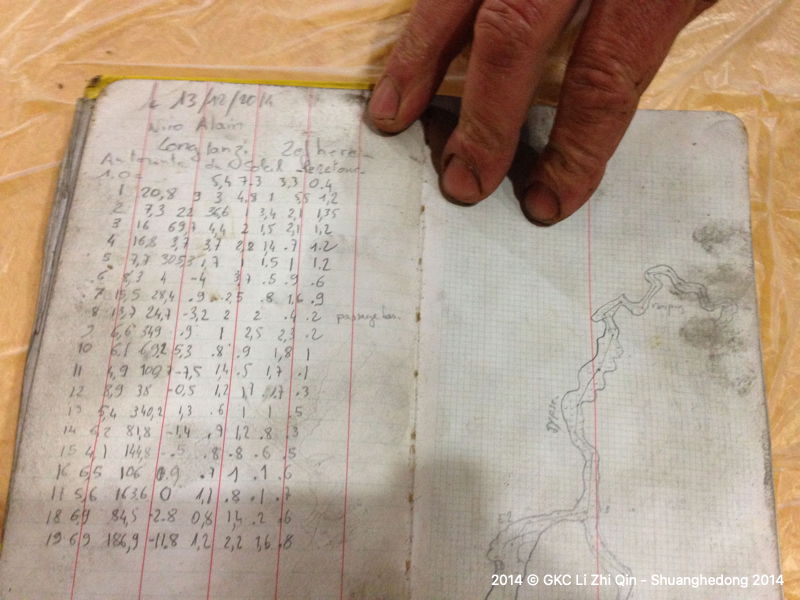 13/12/2014
Nino Alain
du Soleil
1.0= 5,4 7.3 3,3 0.4
1 20,8 9 3 4.8 1 5,5 1,2
2 7,3 22 36,6 1 3,4 2,1 1,35
3 16 69,7 4,4 2 1,5 2,1 1,2
4 16,8 3,7 3,7 2,8 14 .7 1.2
5 7,7 305,3 1,7 1 1,5 1 1.2
6 8,3 4 -4 3,7 .5 .9 .6
7 15,5 28,4 .9 2,5 .8 1,6 .9
8 13,7 24,7 -3,2 2 2 .4 .2 passage bas.
9 6,6 349 .9 1 2,5 2,3 .2
10 6,1 69,2 5,3 .8 .9 1,8 1
11 4,9 108,7 -7,5 1,4 .5 1,7 .1
12 8,9 38 -0,5 1,2 1,7 .3
13 5,4 340,2 1,3 .6 1 1 .5
14 6,2 81,8 -1,4 .9 1,2 .8 .3
15 4,1 144,8 -.5 .8 .8 .6 .5
16 6,5 106 0,9 .7 1 .1 .6
17 5,6 163,6 0 1,1 .8 .1 .7
18 6,9 84,5 -2.8 0,8 1,4 .2 .6
19 6,9 186,9 -11,8 1,2 2,2 1,6 .8
gypse
2014 © GKC Li Zhi Qin - Shuanghedong 2014